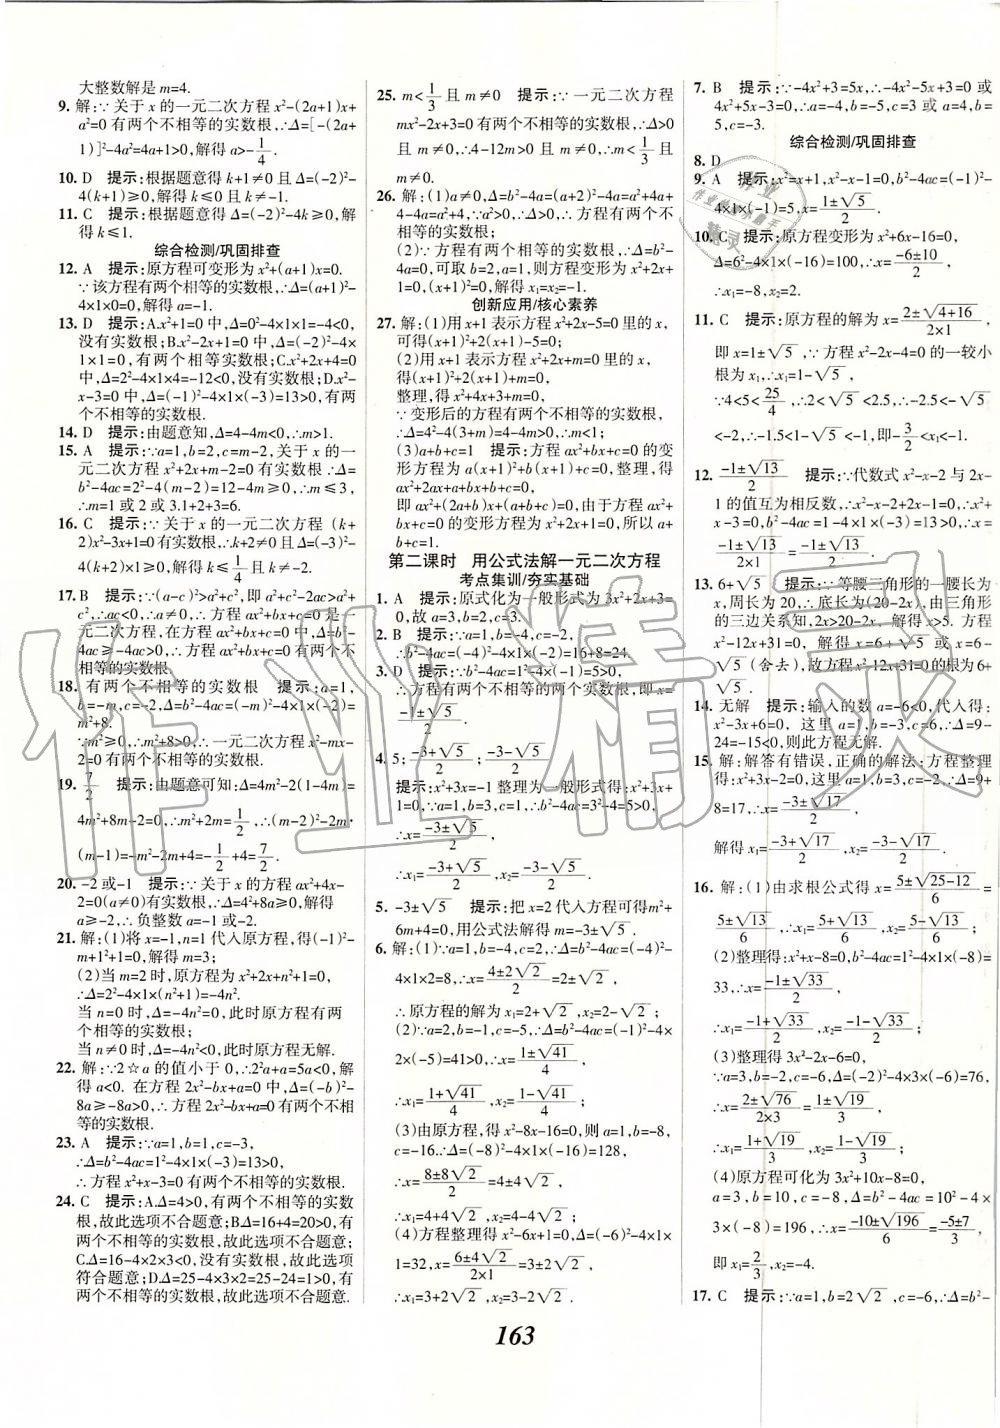 大整数解是m=4.
9. 解:∵关于x的一元二次方程x²-(2a+1)x+
a²=0有两个不相等的实数根,∴Δ=[-(2a+
1)]²-4a²=4a+1>0,解得a>-1/4.
10. D 提示:根据题意得k+1≠0且Δ=(-2)²-
4(k+1)≥0,解得k≤0且k≠-1.
11. C 提示:根据题意得Δ=(-2)²-4k≥0,解
得k≤1.
综合检测/巩固排查
12. A 提示:原方程可变形为x²+(a+1)x=0.
∵该方程有两个相等的实数根,∴Δ=(a+1)²-
4×1×0=0,解得a=-1.
13. D 提示:A.x²+1=0中,Δ=0²-4×1×1=-4<0,
没有实数根;B.x²-2x+1=0中,Δ=(-2)²-4×
1×1=0,有两个相等实数根;C.x²+2x+4=0
中,Δ=2²-4×1×4=-12<0,没有实数根;D.x²-
x-3=0中,Δ=(-1)²-4×1×(-3)=13>0,有两
个不相等的实数根.
14. D 提示:由题意知,Δ=4-4m<0,∴m>1.
15. A 提示:∵a=1,b=2,c=m-2,关于x的一
元二次方程x²+2x+m-2=0有实数根∴Δ=
b²-4ac=2²-4(m-2)=12-4m≥0,∴m≤3,
∴m=1或2或3.1+2+3=6.
16. C 提示:∵关于x的一元二次方程(k+
2)x²-3x+1=0有实数根,∴Δ=(-3)²-4(k+
2)×1≥0,且k+2≠0,解得k≤1/4且k≠-2.
17. B 提示:∵(a-c)²>a²+c²,即a²+c²-2ac>a²+
c²∴ac<0,∴a≠0,∴方程ax²+bx+c=0是一
元二次方程,在方程ax²+bx+c=0中,Δ=b²-
4ac≥-4ac>0,∴方程ax²+bx+c=0有两个不
相等的实数根.
18. 有两个不相等的实数根 提示:a=1,
b=-m,c=-2,Δ=b²-4ac=(-m)²-4×1×(-2)=
m²+8.
∵m²≥0,∴m²+8>0,∴一元二次方程x²-mx-
2=0有两个不相等的实数根.
19. 7/2 提示:由题意可知:Δ=4m²-2(1-4m)=
4m²+8m-2=0,∴m²+2m=1/2,∴(m-2)²-2m·
(m-1)=-m²-2m+4=-1/2+4=7/2.
20. -2或-1 提示:∵关于x的方程ax²+4x-
2=0(a≠0)有实数根,∴Δ=4²+8a≥0,解得
a≥-2,∴负整数a=-1或-2.
21. 解:(1)将x=-1,n=1代入原方程,得(-1)²-
m+1²+1=0,解得m=3;
(2)当m=2时,原方程为x²+2x+n²+1=0,
∴Δ=2²-4×1×(n²+1)=-4n².
当n=0时,Δ=-4n²=0,此时原方程有两
个相等的实数根;
当n≠0时,Δ=-4n²<0,此时原方程无解.
22. 解:∵2☆a的值小于0,∴2²a+a=5a<0,解
得a<0. 在方程2x²-bx+a=0中,Δ=(-b)²-
8a≥-8a>0,∴方程2x²-bx+a=0有两个不相
等的实数根.
23. A 提示:∵a=1,b=1,c=-3,
∴Δ=b²-4ac=1²-4×1×(-3)=13>0,
∴方程x²+x-3=0有两个不相等的实数根.
24. C 提示:A.Δ=4>0,有两个不相等的实数
根,故此选项不合题意;B.Δ=16+4=20>0,有
两个不相等的实数根,故此选项不合题意;
C.Δ=16-4×2×3<0,没有实数根,故此选项
符合题意;D.Δ=25-4×3×2=25-24=1>0,有
两个不相等的实数根,故此选项不合题意.
25. m<1/3且m≠0 提示:∵一元二次方程
mx²-2x+3=0有两个不相等的实数根,∴Δ>0
且m≠0,∴4-12m>0且m≠0,∴m<1/3且
m≠0.
26. 解:(1)a≠0,Δ=b²-4a=(a+2)²-4a=a²+4a+
4-4a=a²+4,∵a²>0,∴Δ>0,∴方程有两个不
相等的实数根;
(2)∵方程有两个相等的实数根,∴Δ=b²-
4a=0,可取b=2,a=1,则方程变形为x²+2x+
1=0,解得x₁=x₂=-1.
创新应用/核心素养
27. 解:(1)用x+1表示方程x²+2x-5=0里的x,
可得(x+1)²+2(x+1)-5=0;
(2)用x+1表示方程x²+2x+m=0里的x,
得(x+1)²+2(x+1)+m=0,
整理,得x²+4x+3+m=0,
∵变形后的方程有两个不相等的实数根,
∴Δ=4²-4(3+m)=4-4m>0,∴m<1;
(3)a+b+c=1 提示:方程ax²+bx+c=0的变
形方程为a(x+1)²+b(x+1)+c=0,整理,得
ax²+2ax+a+bx+b+c=0,
即ax²+(2a+b)x+(a+b+c)=0,由于方程ax²+
bx+c=0的变形方程为x²+2x+1=0,所以a+
b+c=1.
第二课时 用公式法解一元二次方程
考点集训/夯实基础
1. A 提示:原式化为一般形式为3x²+2x+3=
0,故a=3,b=2,c=3.
2. B 提示:∵a=1,b=-4,c=-2,
∴b²-4ac=(-4)²-4×1×(-2)=16+8=24.
3. D 提示:∵Δ=b²-4ac=1²-4×(-1)=5>0,
∴方程有两个不相等的实数根,即x=
(-1±√5)/2.
4. 5; (-3+√5)/2; (-3-√5)/2
提示:x²+3x=-1整理为一般形式得:x²+3x+
1=0,∵a=1,b=3,c=1,∴Δ=b²-4ac=3²-4=5>0,
∴x=(-3±√5)/2,
∴x₁=(-3+√5)/2,x₂=(-3-√5)/2.
5. -3±√5 提示:把x=2代入方程可得m²+
6m+4=0,用公式法解得m=-3±√5.
6. 解:(1)∵a=1,b=-4,c=2,∴Δ=b²-4ac=(-4)²-
4×1×2=8,∴x=(4±2√2)/2=2±√2,
∴原方程的解为x₁=2+√2,x₂=2-√2;
(2)∵a=2,b=-1,c=-5,∴Δ=b²-4ac=(-1)²-4×
2×(-5)=41>0,∴x=(1±√41)/4,
∴x₁=(1+√41)/4,x₂=(1-√41)/4;
(3)由原方程,得x²-8x-16=0,则a=1,b=-8,
c=-16..∴Δ=(-8)²-4×1×(-16)=128,
∴x=(8±8√2)/2=4±4√2,
∴x₁=4+4√2,x₂=4-4√2;
(4)方程整理得x²-6x+1=0,Δ=(-6)²-4×1×
1=32,x=(6±4√2)/(2×1)=3±2√2,
∴x₁=3+2√2,x₂=3-2√2.
7. B 提示:∵-4x²+3=5x,∴-4x²-5x+3=0或
4x²+5x-3=0,∴a=-4,b=-5,c=3或a=4,b=
5,c=-3.
综合检测/巩固排查
8. D
9. A 提示:x²=x+1,x²-x-1=0,b²-4ac=(-1)²-
4×1×(-1)=5,x=(1±√5)/2.
10. C 提示:原方程变形为x²+6x-16=0,
Δ=6²-4×1×(-16)=100,∴x=(-6±10)/2,
∴x₁=-8,x₂=2.
11. C 提示:原方程的解为x=(2±√(4+16))/(2×1),
即x=1±√5,∵方程x²-2x-4=0的一较小
根为x₁,∴x₁=1-√5.
∵4<5<25/4,∴2<√5<2.5,∴-2.5<-√5
<-2,∴-1.5<1-√5<-1,即-3/2<x₁<-1.
12. (-1±√13)/2 提示:∵代数式x²-x-2与2x-
1的值互为相反数,∴x²-x-2+2x-1=0,∴x²+
x-3=0,b²-4ac=1-4×1×(-3)=13>0,∴x=
(-1±√13)/2.
13. 6+√5 提示:∵等腰三角形的一腰长为
x,周长为20,∴底长为(20-2x),由三角形
的三边关系知,2x>20-2x,解得x>5. 方程
x²-12x+31=0,解得x=6+√5或x=6-
√5(舍去),故方程x²-12x+31=0的根为6+
√5.
14. 无解 提示:输入的数a=-6<0,代入得:
x²-3x+6=0,这里a=1,b=-3,c=6,∴Δ=9-
24=-15<0,则此方程无解.
15. 解:解答有错误,正确的解法:方程整理
得:x²+3x-2=0,这里a=1,b=3,c=-2,∴Δ=9+
8=17,∴x=(-3±√17)/2,
解得x₁=(-3+√17)/2,x₂=(-3-√17)/2.
16. 解:(1)由求根公式得x=(5±√(25-12))/6=
(5±√13)/6,∴x₁=(5+√13)/6,x₂=(5-√13)/6;
(2)整理得:x²+x-8=0,Δ=b²-4ac=1²-4×1×(-8)=
33,∴x=(-1±√33)/2,
∴x₁=(-1+√33)/2,x₂=(-1-√33)/2;
(3)整理得3x²-2x-2=0,
∵a=3,b=-2,c=-2,∴Δ=(-2)²-4×3×(-6)=76,
∴x=(2±√76)/(2×3)=(1±√19)/3,
∴x₁=(1+√19)/3,x₂=(1-√19)/3;
(4)原方程可化为3x²+10x-8=0,
∵a=3,b=10,c=-8,Δ=b²-4ac=10²-4×
3×(-8)=196,∴x=(-10±√196)/6=(-5±7)/3,
即x₁=2/3,x₂=-4.
17. C 提示:∵a=1,b=2√2,c=-6,∴Δ=b²-
163
作业精灵